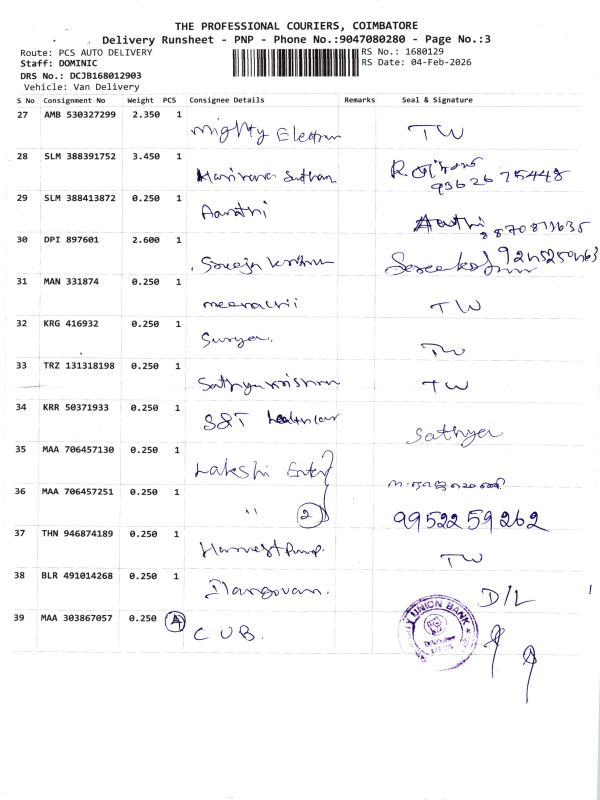 THE PROFESSIONAL COURIERS, COIMBATORE
Delivery Runsheet - PNP - Phone No.:9047080280 - Page No.:3
Route: PCS AUTO DELIVERY RS No.: 1680129
Staff: DOMINIC RS Date: 04-Feb-2026
DRS No.: DCJB168012903
Vehicle: Van Delivery
S No Consignment No Weight PCS Consignee Details Remarks Seal & Signature
27 AMB 530327299 2.350 1 Mighty Electron TW
28 SLM 388391752 3.450 1 Harirama Suthan R.
93626 75448
29 SLM 388413872 0.250 1 Aarathi Aarthi
8870879635
30 DPI 897601 2.600 1 Sreeja Krishna
31 MAN 331874 0.250 1 meenachi TW
32 KRG 416932 0.250 1 Surya. TW
33 TRZ 131318198 0.250 1 Sathya Krishna TW
34 KRR 50371933 0.250 1 S&T healthcare Sathya
35 MAA 706457130 0.250 1 Lakshi Entp
36 MAA 706457251 0.250 1 " 2 99522 59262
37 THN 946874189 0.250 1 Harvest Pump. TW
38 BLR 491014268 0.250 1 Ilangovan. D/L
39 MAA 303867057 0.250 C U B. UNION BANK